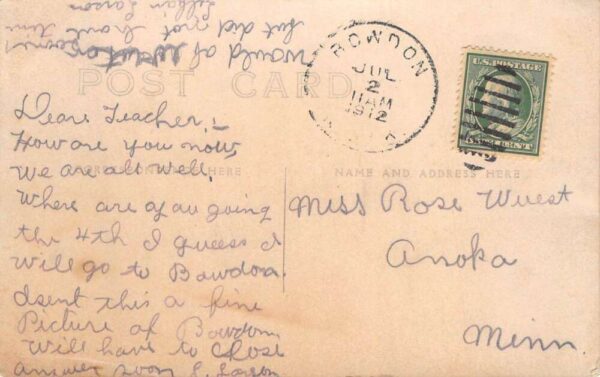 would of wrote sooner
but did not have time
Lillian Larson
POST CARD
BOWDON
JUL
2
11 AM
1912
N. D.
U.S. POSTAGE
ONE CENT
Dear Teacher:-
How are you now,
We are all well.
CORRESPONDENCE HERE
NAME AND ADDRESS HERE
Where are you going
the 4th I guess I
will go to Bowdon.
Isent this a fine
Picture of Bowdon
Will have to close
answer soon L. Larson
Miss Rose Wuest
Anoka
Minn.